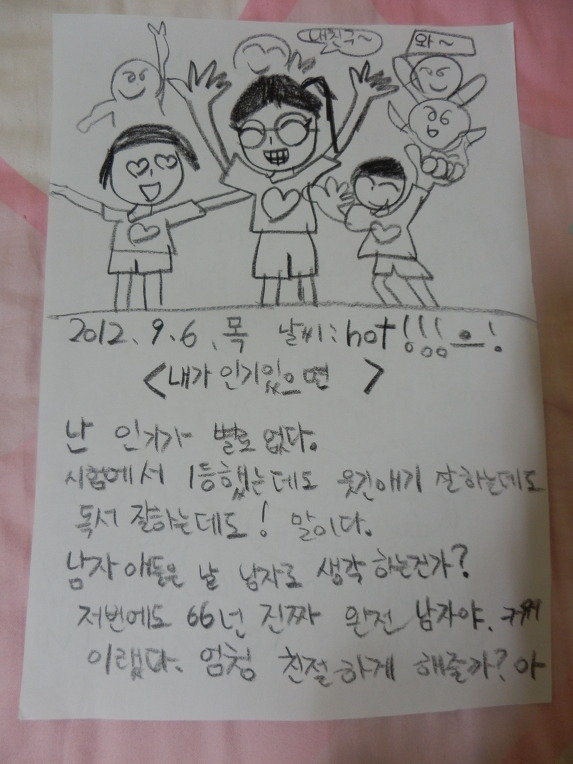 내친구~
와~
2012. 9. 6. 목 날씨: hot!!!으!
<내가 인기있으면 >
난 인기가 별로 없다.
시험에서 1등했는데도 웃긴얘기 잘하는데도
독서 잘하는데도! 말이다.
남자 애들은 날 남자로 생각 하는건가?
저번에도 66넌 진짜 완전 남자야.
이랬다. 엄청 친절하게 해줄까? 아